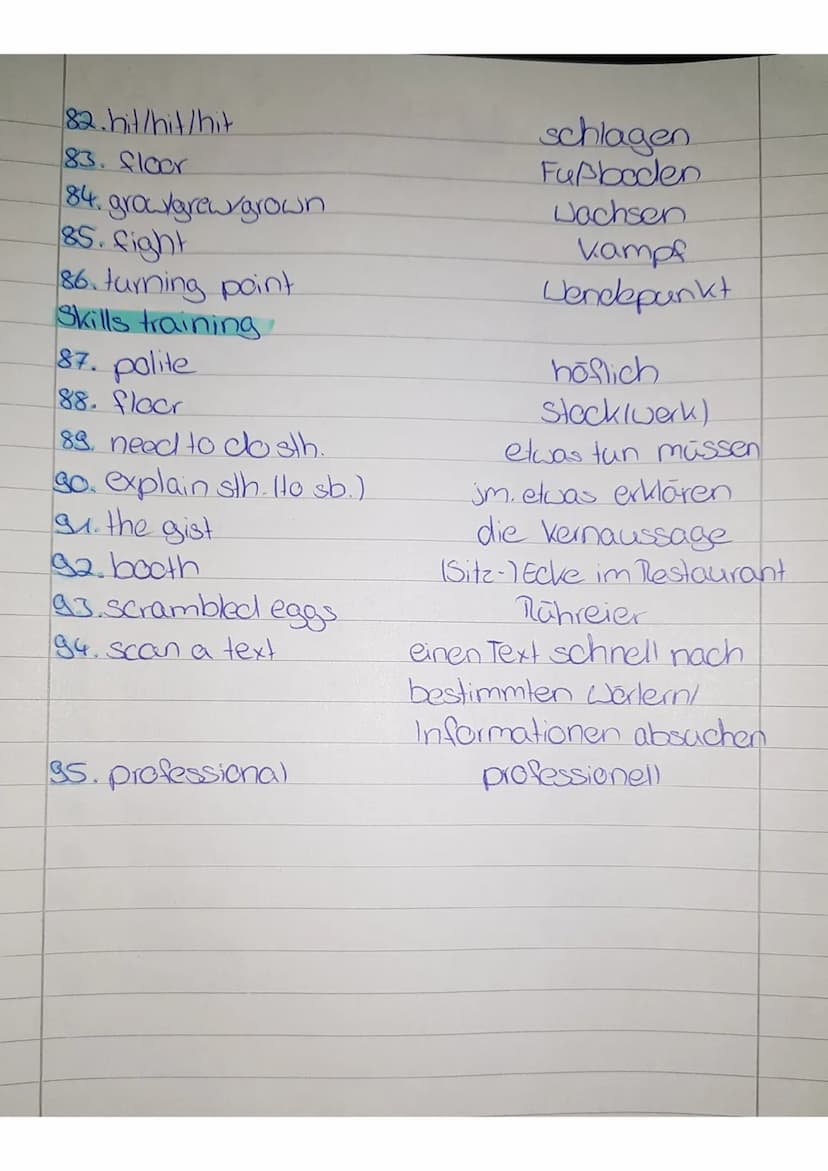 82. hit/hit/hit schlagen
83. floor Fußboden
84. grow/grew/grown wachsen
85. fight Kampf
86. turning point Wendepunkt
Skills training
87. polite höflich
88. floor Stock(werk)
89. need to do sth. etwas tun müssen
90. explain sth. (to sb.) jm. etwas erklären
91. the gist die Kernaussage
92. booth (Sitz-)Ecke im Restaurant
93. scrambled eggs Rühreier
94. scan a text einen Text schnell nach
bestimmten Wörtern/
Informationen absuchen
95. professional professionell